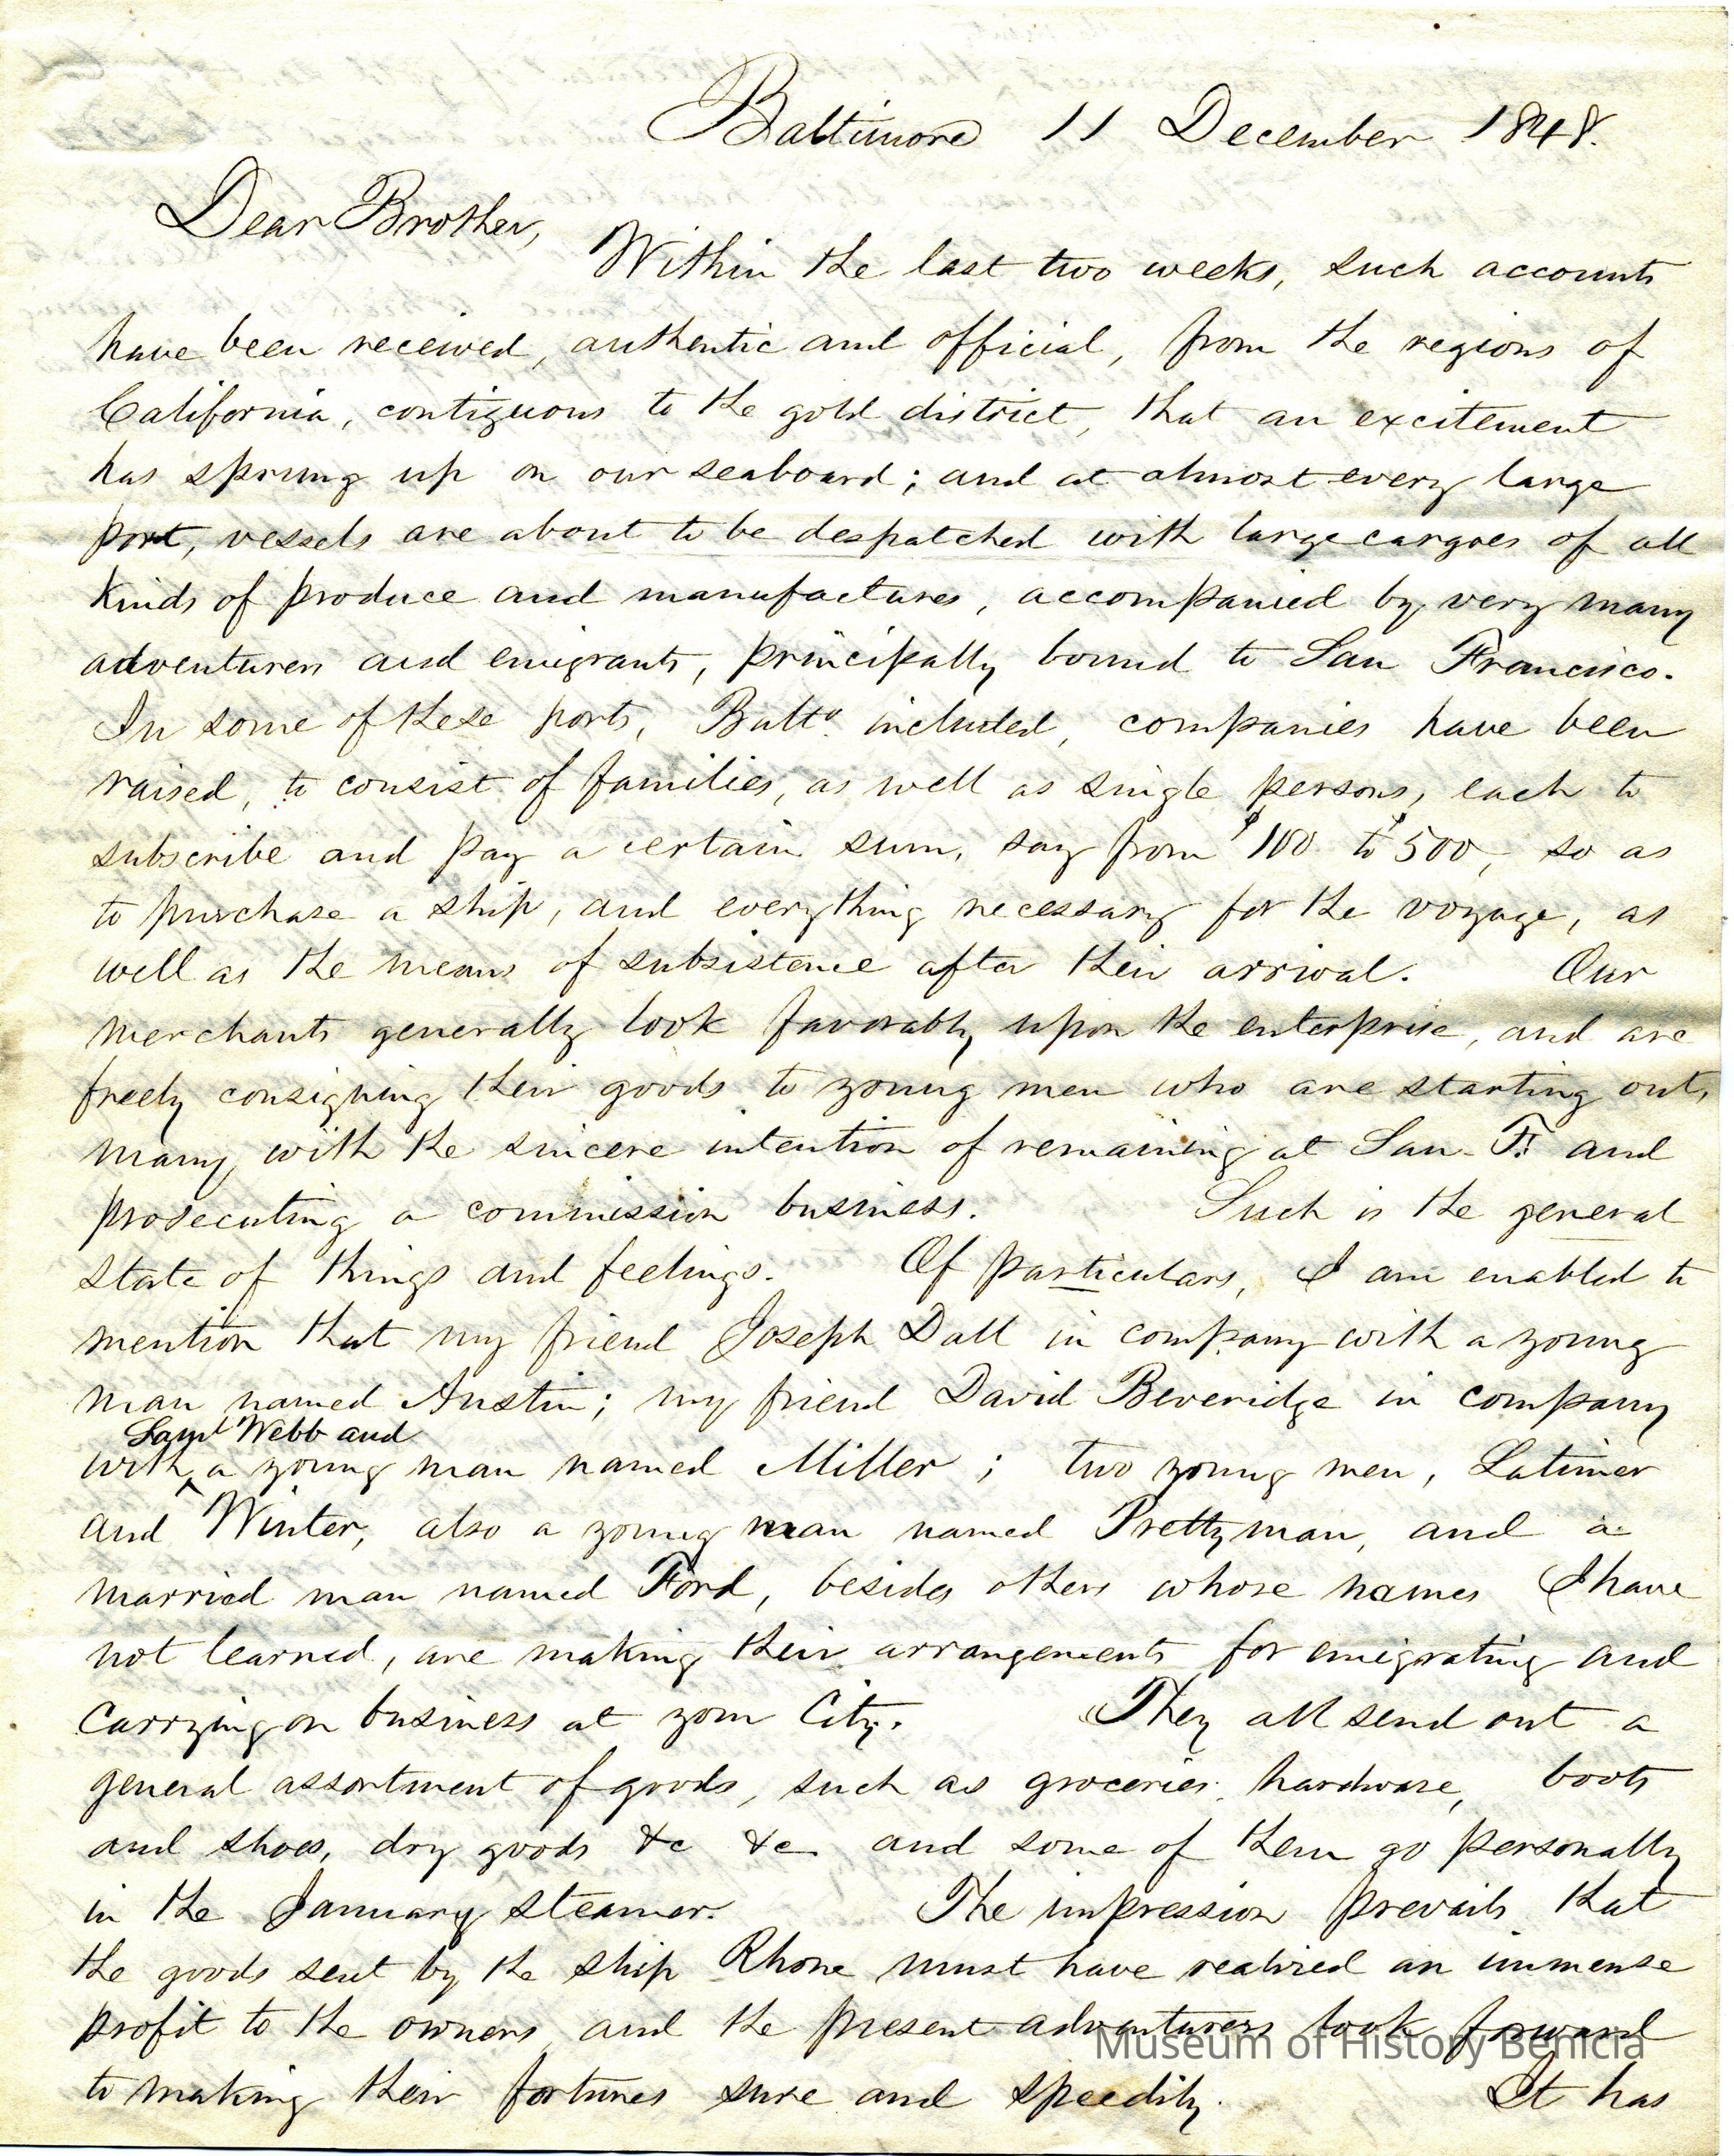 Baltimore 11 December 1848.
Dear Brother,
Within the last two weeks, such accounts
have been received, authentic and official, from the regions of
California, contiguous to the gold district, that an excitement
has sprung up on our seaboard; and at almost every large
port, vessels are about to be despatched with large cargoes of all
kinds of produce and manufactures, accompanied by very many
adventurers and emigrants, principally bound to San Francisco.
In some of these ports, Balto. included, companies have been
raised, to consist of families, as well as single persons, each to
subscribe and pay a certain sum, say from $100 to $500, so as
to purchase a ship, and everything necessary for the voyage, as
well as the means of subsistence after their arrival. Our
merchants generally look favorably upon the enterprise, and are
freely consigning their goods to young men who are starting out,
many with the sincere intention of remaining at San F. and
prosecuting a commission business. Such is the general
state of things and feelings. Of particulars, I am enabled to
mention that my friend Joseph Dall in company with a young
man named Austin; my friend David Beveridge in company
Saml Webb and
with a young man named Miller; two young men, Latimer
and Winter, also a young man named Prettyman, and a
married man named Ford, besides others whose names I have
not learned, are making their arrangements for emigrating and
carrying on business at your City. They all send out a
general assortment of goods, such as groceries, hardware, boots
and shoes, dry goods &c &c and some of them go personally
in the January steamer. The impression prevails that
the goods sent by the ship Rhone must have realized an immense
profit to the owners, and the present adventurers look forward
to making their fortunes sure and speedily. It has
Museum of History Benicia